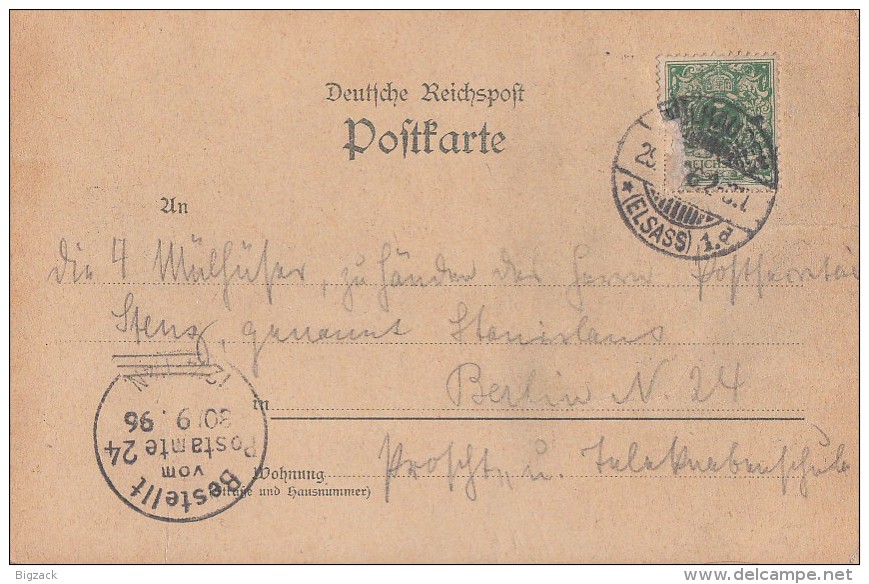 Deutsche Reichspost
Postkarte
REICHSPOST
29.
(ELSASS) 1.d
An
die 4 Mülhüser, zu Händen des Herrn Postsecretär
Stenz, genannt Stanislaus
in Berlin N. 24
Bestellt
vom
Postamte 24
30/9. 96
Wohnung
(Straße und Hausnummer)
u. Teleknabenschule
Bigzack
delcampe.net